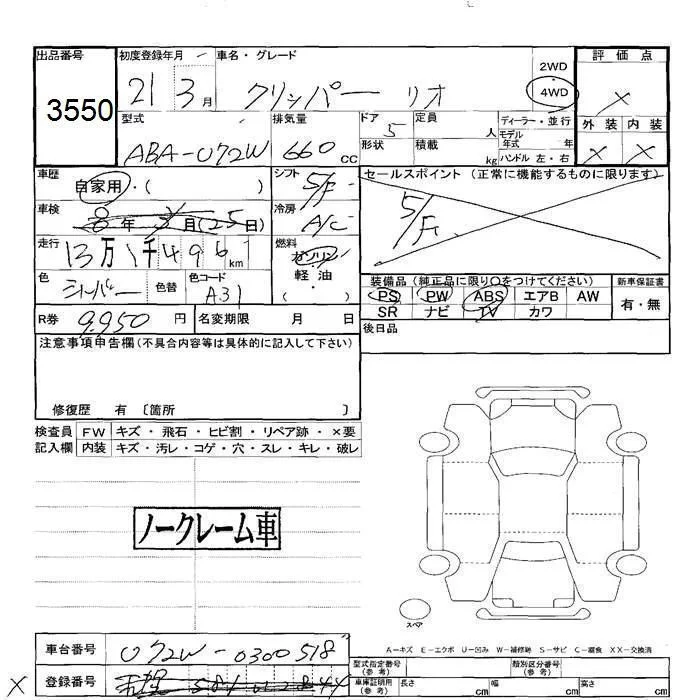 出品番号 初度登録年月 車名・グレード 2WD 評価点
3550 21 3月 クリッパー リオ 4WD ×
型式 排気量 ドア 定員 ディーラー・並行 外装 内装
ABA-U72W 660 CC 5 人 モデル年式 年 × ×
形状 積載 kg ハンドル 左・右
車歴 シフト 5/F セールスポイント (正常に機能するものに限ります)
自家用・( ) 5/F
車検 冷房
年 月(25日) A/C
走行 燃料
13万1千496km ガソリン
色 色替 色コード 軽油 装備品 (純正品に限り○をつけてください) 新車保証書
シルバー A31 ・( ) PS PW ABS エアB AW 有・無
R券 9,950円 名変期限 月 日 SR ナビ TV カワ
後日品
注意事項申告欄(不具合内容等は具体的に記入して下さい)
修復歴 有 〔箇所 〕
検査員 FW キズ・飛石・ヒビ割・リペア跡・×要
記入欄 内装 キズ・汚レ・コゲ・穴・スレ・キレ・破レ
ノークレーム車
スペア
A-キズ E-エクボ U-凹み W-補修跡 S-サビ C-腐食 XX-交換済
車台番号 U72W-0300518
型式指定番号(参考) 類別区分番号(参考)
× 登録番号
車庫証明用(参考) 長さ cm 幅 cm 高さ cm